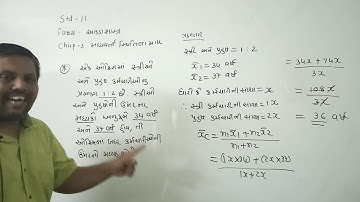 Std-11
વિષય - આંકડાશાસ્ત્ર
Chap-3 મધ્યવર્તી સ્થિતિના માપ
એક ઓફિસમાં સ્ત્રીઓ
અને પુરુષ કર્મચારીઓનું
પ્રમાણ 1:2 છે સ્ત્રીઓ
અને પુરુષોની ઉંમરના
મધ્યકો અનુક્રમે 34 વર્ષ
અને 37 વર્ષ હોય, તો
ઓફિસના બધા કર્મચારીઓની
ઉંમરનો મધ્યક
ગણતરી
સ્ત્રી અને પુરુષ = 1:2
x̄1 = 34 વર્ષ
x̄2 = 37 વર્ષ
ધારો કે કર્મચારીની સંખ્યા = x
∴ સ્ત્રી કર્મચારીની સંખ્યા = 1x
પુરુષ કર્મચારીની સંખ્યા = 2x
x̄c = n1x̄1 + n2x̄2
n1 + n2
= (1x×34) + (2x×37)
1x+2x
= 34x + 74x
3x
= 108x
3x
= 36 વર્ષ